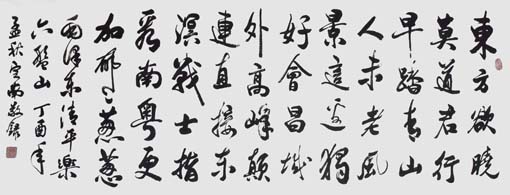 東方欲曉
莫道君行
早踏青山
人未老風
景這邊獨
好會昌城
外高峰顛
連直接东
溟戰士指
看南粵更
加郁〻葱葱
毛澤东清平樂
六盤山 丁酉年
孟秋 敬錄